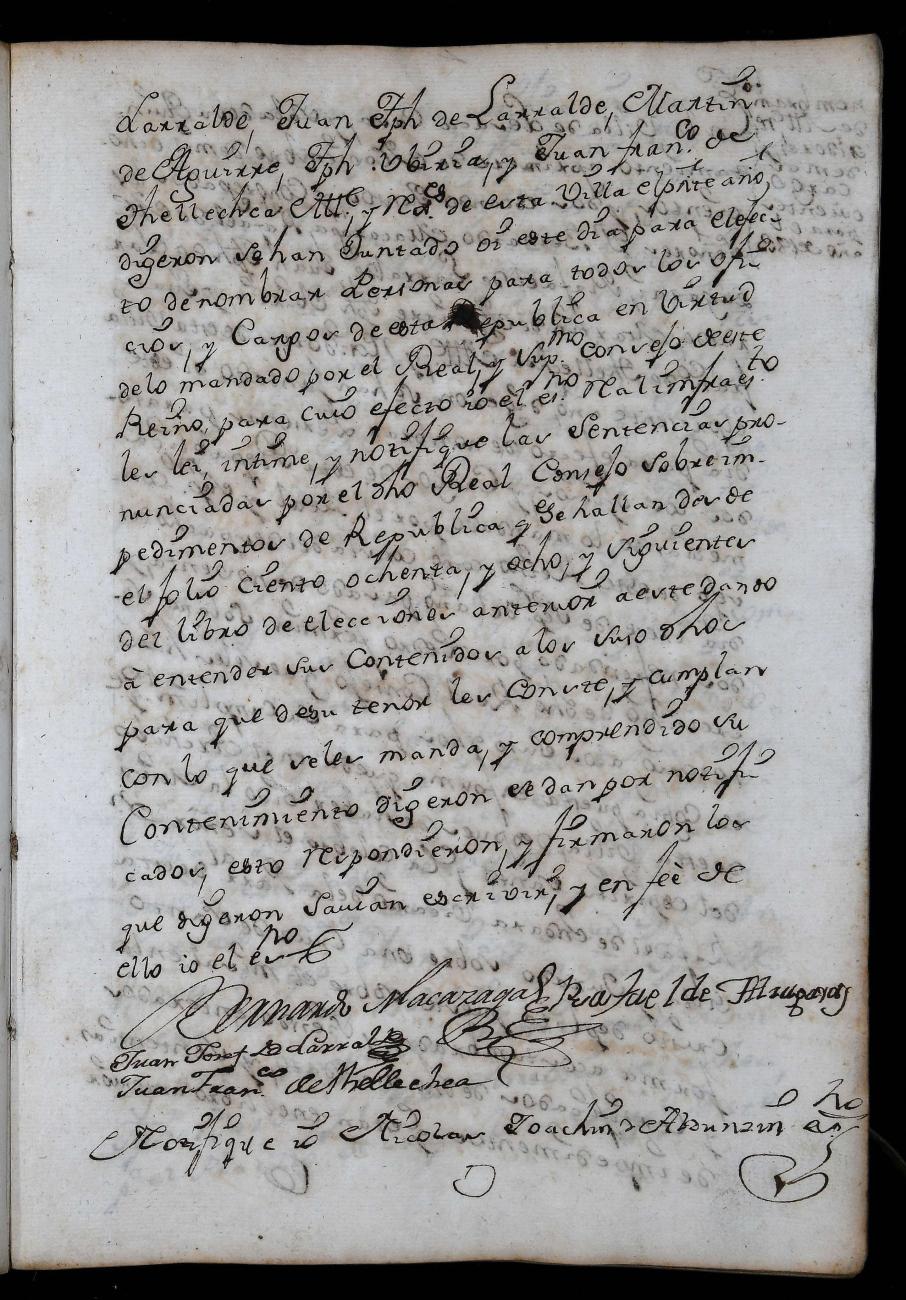 Larralde, Juan Jph de Larralde, Martin
de Aguirre, Jph Ubiria, y Juan Franco. de
Thellechea Alle, y Rexes de esta Villa el pnte año,
digeron sehan Juntado oi este dia para efec-
to denombrar Personas para todos los ofi-
cios, y Cargos de esta Republica en Virtud
delo mandado por el Real, y Supmo. Consejo deeste
Reino, para cuio efecto io el esno. Real infraesto.
les lei, intime, y notifique las Sentencias pro-
nunciadas por el dho Real Consejo sobre im-
pedimentos de Republica qe se hallan desde
el folio Ciento ochenta, y ocho, y siguientes
del libro de elecciones anterior aeste dando
à entender sus Contenidos alos suso dhos
para que desu tenor les Conste, y cumplan
con lo que seles manda, y comprendido su
Contenimiento digeron se dan por notifi-
cados, esto respondieron, y firmaron los
que digeron Savian escrivir, y en feè de
ello io el esno
Bernardo Macazaga Rafael de
Juan Josef de Larralde
Juan Franco. de Thellechea
Notifique io Nicolas Joachin de Abdunzin esno